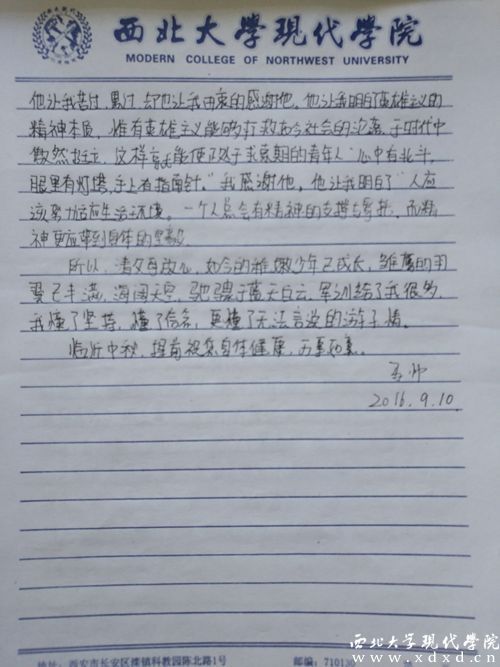 西北大學現代學院
MODERN COLLEGE OF NORTHWEST UNIVERSITY
他让我苦过,累过,却也让我由衷的感谢他。他让我明白英雄主义的
精神本质,惟有英雄主义能够打救当今社会的沦落,于时代中
傲然挺立,这样才能使正处于求索期的青年人"心中有北斗,
眼里有灯塔,手上有指南针"。我感谢他,他让我明白了人应
该努力适应生活环境。一个人总会有精神的支撑与寄托,而精
神更应牵到身体的
所以,请父母放心,如今的稚嫩少年已成长,雏鹰的羽
翼已丰满,海阔天空,驰骋于蓝天白云,军训给了我很多,
我懂了坚持,懂了信念,更懂了无法言说的游子情。
临近中秋,提前祝您身体健康,万事如意。
2016.9.10.
地址:西安市长安区滦镇科教园陈北路1号 邮编:71013
西北大学现代学院
www.xdxd.cn